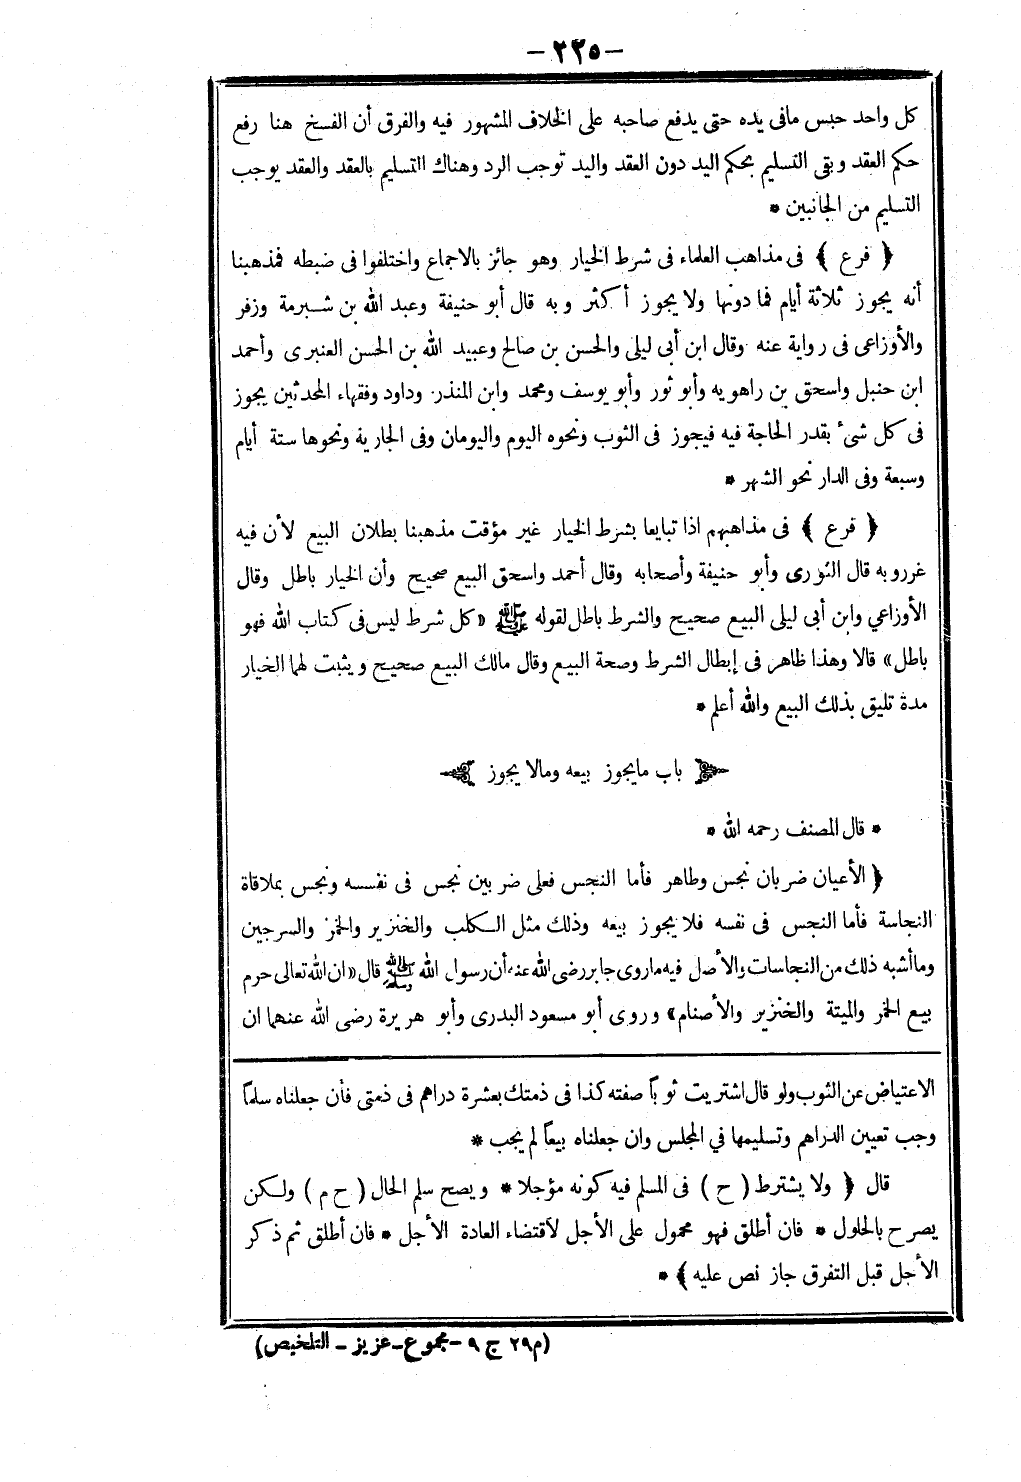 —٢٢٥—
كل واحد حبس مافى يده حتى يدفع صاحبه على الخلاف المشهور فيه والفرق أن الفسخ هنا رفع
حكم العقد وبقى التسليم بحكم اليد دون العقد واليد توجب الرد وهناك التسليم بالعقد والعقد يوجب
التسليم من الجانبين *
﴿ فرع ﴾ فى مذاهب العلماء فى شرط الخيار وهو جائز بالاجماع واختلفوا فى ضبطه فمذهبنا
أنه يجوز ثلاثة أيام فما دونها ولا يجوز أكثر وبه قال أبو حنيفة وعبد الله بن شبرمة وزفر
والأوزاعى فى رواية عنه وقال ابن أبى ليلى والحسن بن صالح وعبيد الله بن الحسن العنبرى وأحمد
ابن حنبل واسحق بن راهويه وأبو ثور وأبو يوسف ومحمد وابن المنذر وداود وفقهاء المحدثين يجوز
فى كل شىء بقدر الحاجة فيه فيجوز فى الثوب ونحوه اليوم واليومان وفى الجارية ونحوها ستة أيام
وسبعة وفى الدار نحو الشهر *
﴿ فرع ﴾ فى مذاهبهم اذا تبايعا بشرط الخيار غير مؤقت مذهبنا بطلان البيع لأن فيه
غرر وبه قال الثورى وأبو حنيفة وأصحابه وقال أحمد واسحق البيع صحيح وأن الخيار باطل وقال
الأوزاعي وابن أبى ليلى البيع صحيح والشرط باطل لقوله ﷺ «كل شرط ليس فى كتاب الله فهو
باطل» قالا وهذا ظاهر فى إبطال الشرط وصحة البيع وقال مالك البيع صحيح ويثبت لهما الخيار
مدة تليق بذلك البيع والله أعلم *
باب مايجوز بيعه ومالا يجوز
* قال المصنف رحمه الله *
﴿ الأعيان ضربان نجس وطاهر فأما النجس فعلى ضربين نجس فى نفسه ونجس بملاقاة
النجاسة فأما النجس فى نفسه فلا يجوز بيعه وذلك مثل الكلب والخنزير والخمر والسرجين
وماأشبه ذلك من النجاسات والأصل فيه ماروى جابر رضى الله عنه أن رسول الله ﷺ قال «ان الله تعالى حرم
بيع الخمر والميتة والخنزير والأصنام» وروى أبو مسعود البدرى وأبو هريرة رضى الله عنهما ان
الاعتياض عن الثوب ولو قال اشتريت ثوباً صفته كذا فى ذمتك بعشرة دراهم فى ذمتى فأن جعلناه سلماً
وجب تعيين الدراهم وتسليمها في المجلس وان جعلناه بيعاً لم يجب *
قال ﴿ ولا يشترط (ح) فى المسلم فيه كونه مؤجلا * ويصح سلم الحال (ح م) ولكن
يصرح بالحلول * فان أطلق فهو محمول على الأجل لاقتضاء العادة الأجل * فان أطلق ثم ذكر
الأجل قبل التفرق جاز نص عليه ﴾ *
(م ٢٩ ج ٩ – مجموع – عزيز – التلخيص)